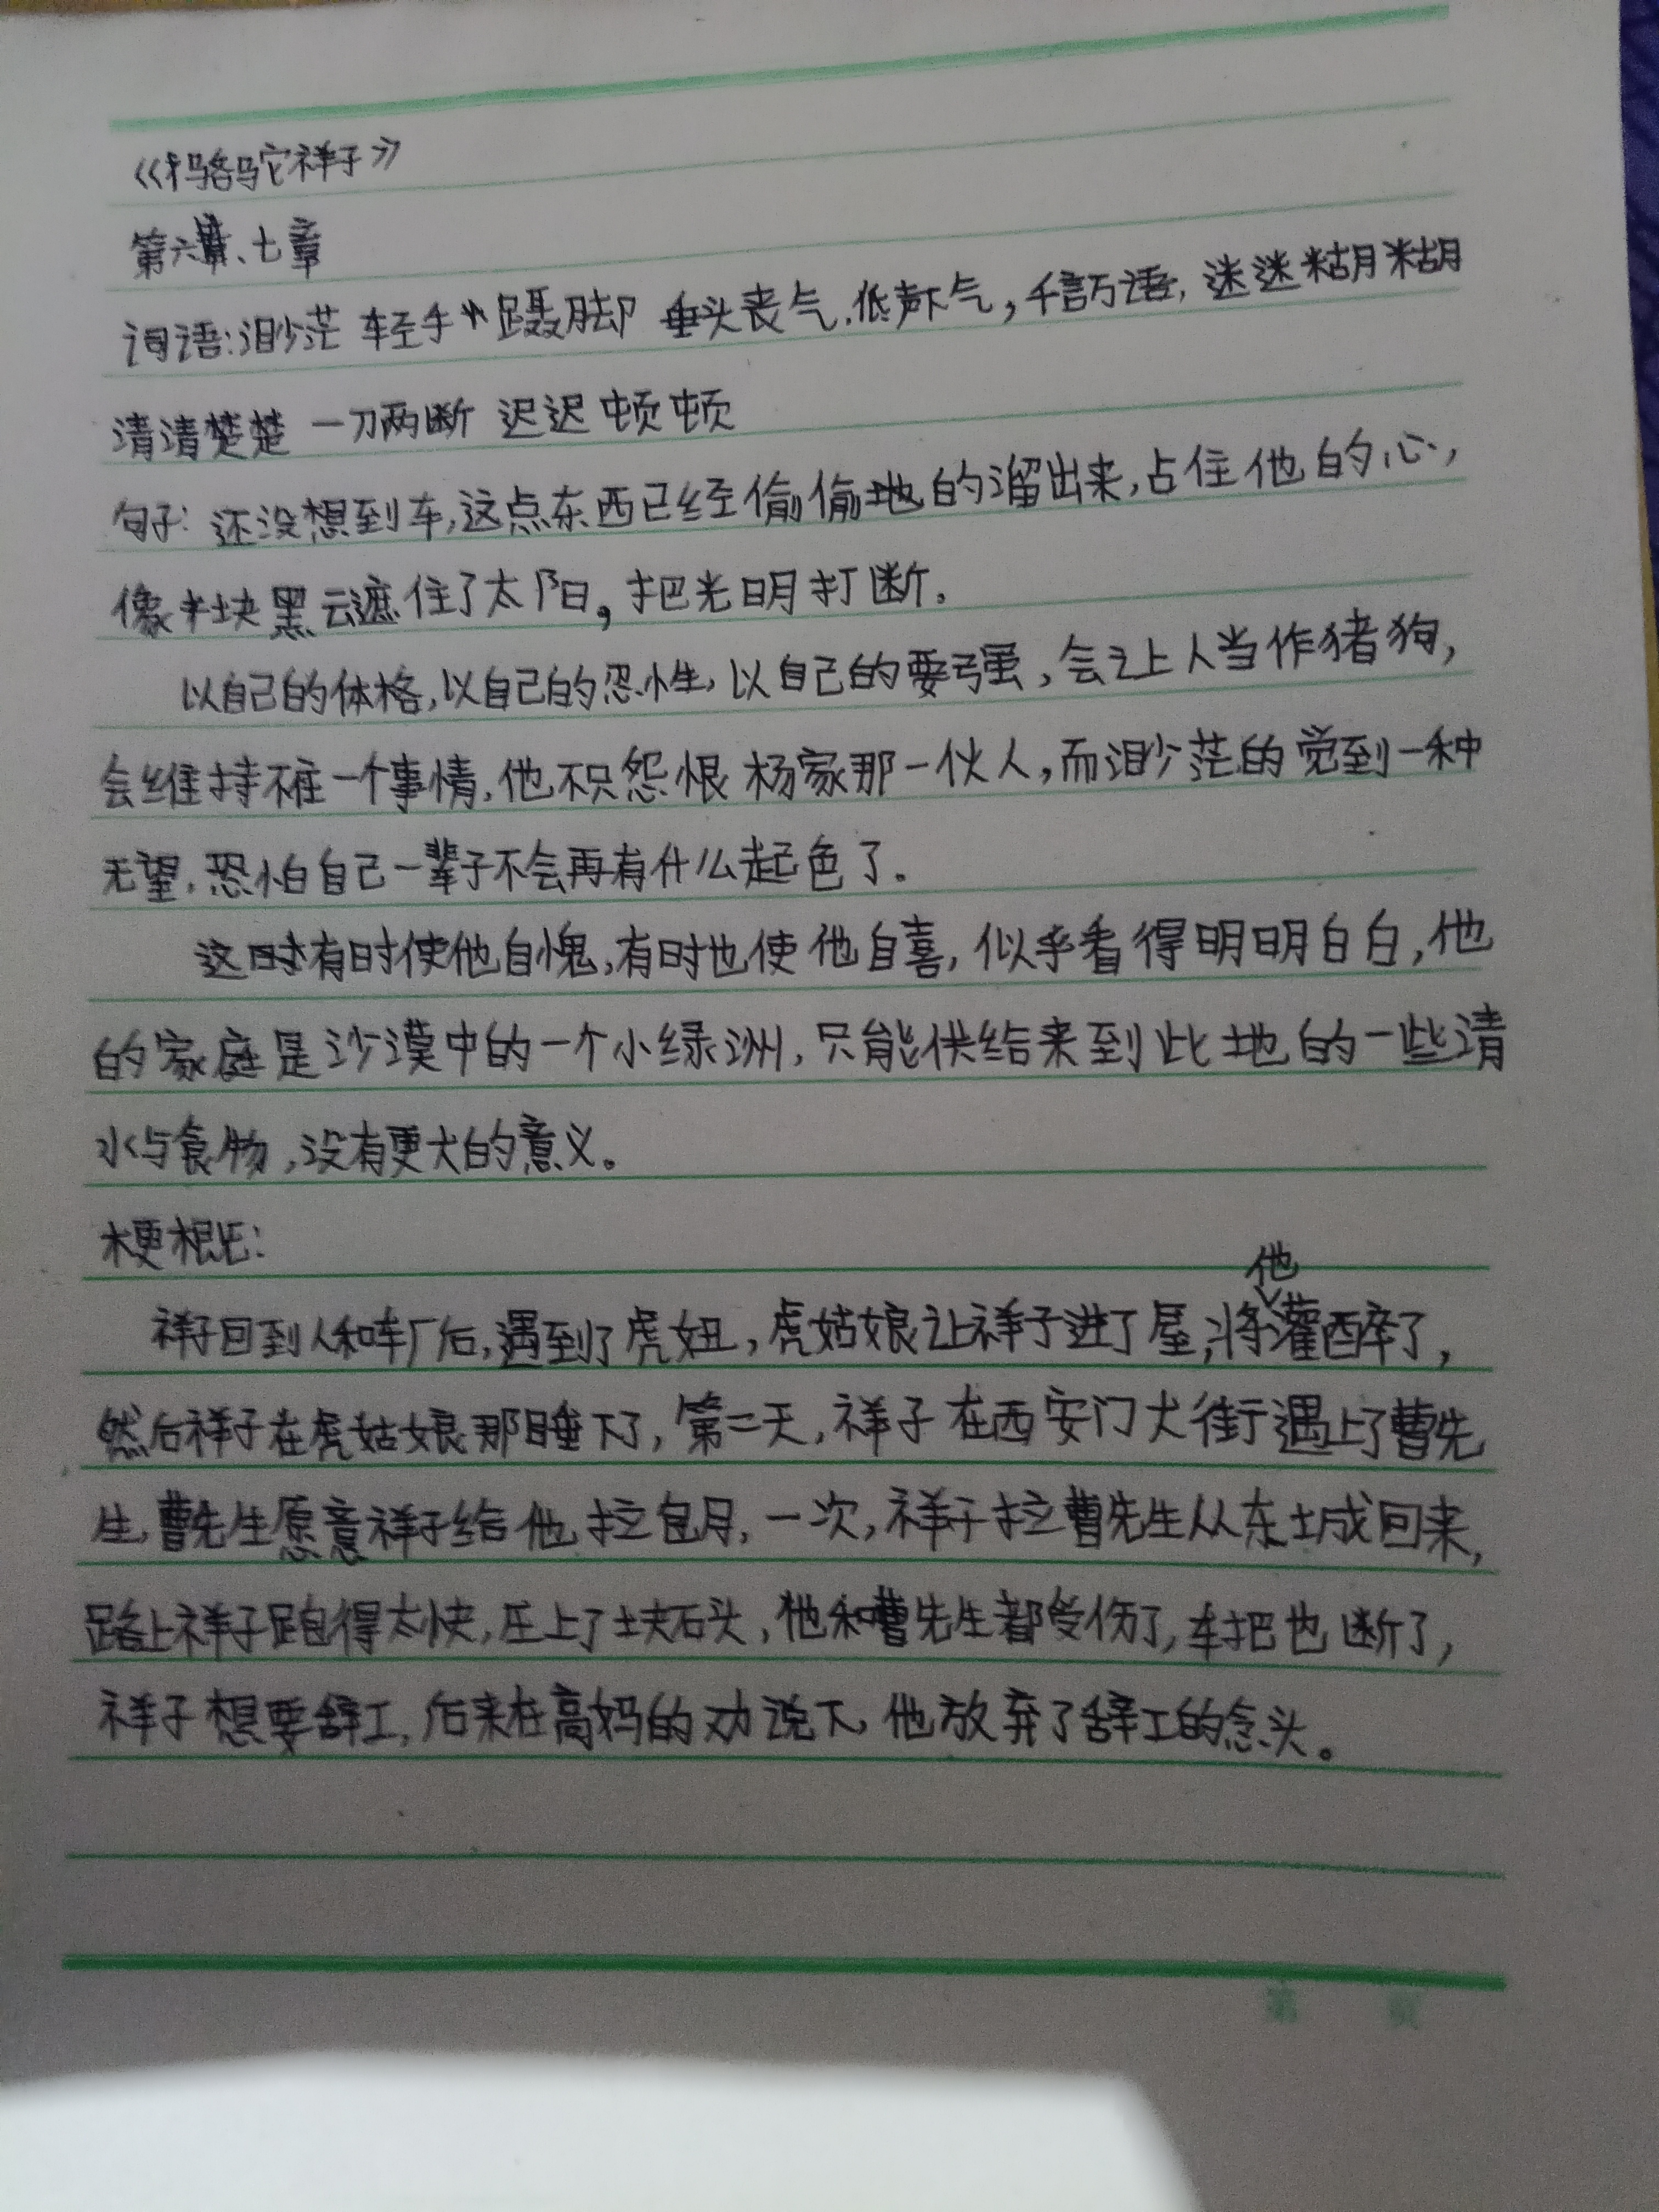 《骆驼祥子》
第六章、七章
词语:渺茫 轻手 蹑脚 垂头丧气.低声下气,千言万语,迷迷糊糊
清清楚楚 一刀两断 迟迟顿顿
句子:还没想到车,这点东西已经偷偷地的溜出来,占住他的心,
像半块黑云遮住了太阳,把光明打断。
以自己的体格,以自己的忍性,以自己的要强,会让人当作猪狗,
会维持不住一个事情,他不只怨恨杨家那一伙人,而渺茫的觉到一种
无望,恐怕自己一辈子不会再有什么起色了。
这时有时使他自愧,有时也使他自喜,似乎看得明明白白,他
的家庭是沙漠中的一个小绿洲,只能供给来到此地的一些清
水与食物,没有更大的意义。
梗概:
祥子回到人和车厂后,遇到了虎妞,虎姑娘让祥子进了屋,将他灌醉了,
然后祥子在虎姑娘那睡下了,第二天,祥子在西安门大街遇上了曹先
生,曹先生愿意祥子给他拉包月,一次,祥子拉曹先生从东城回来,
路上祥子跑得太快,压上了块石头,他和曹先生都受伤了,车把也断了,
祥子想要辞工,后来在高妈的劝说下,他放弃了辞工的念头。
第 页